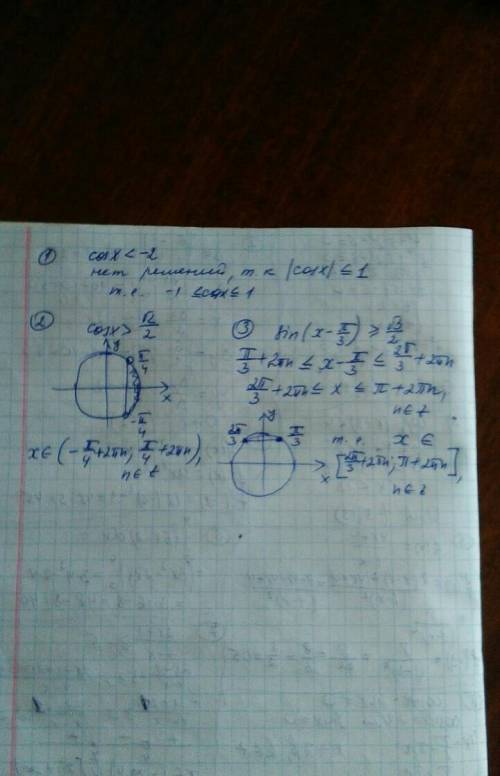 ① cosx < -2
нет решений, т.к |cosx| ≤ 1
т.е. -1 ≤ cosx ≤ 1
② cosx > √2/2
y
π/4
x
-π/4
x ∈ (-π/4 + 2πn; π/4 + 2πn),
n ∈ z
③ sin(x - π/3) ≥ √3/2
π/3 + 2πn ≤ x - π/3 ≤ 2π/3 + 2πn
2π/3 + 2πn ≤ x ≤ π + 2πn,
n ∈ z
y
2π/3 π/3
x
т.е. x ∈
[2π/3 + 2πn; π + 2πn],
n ∈ z